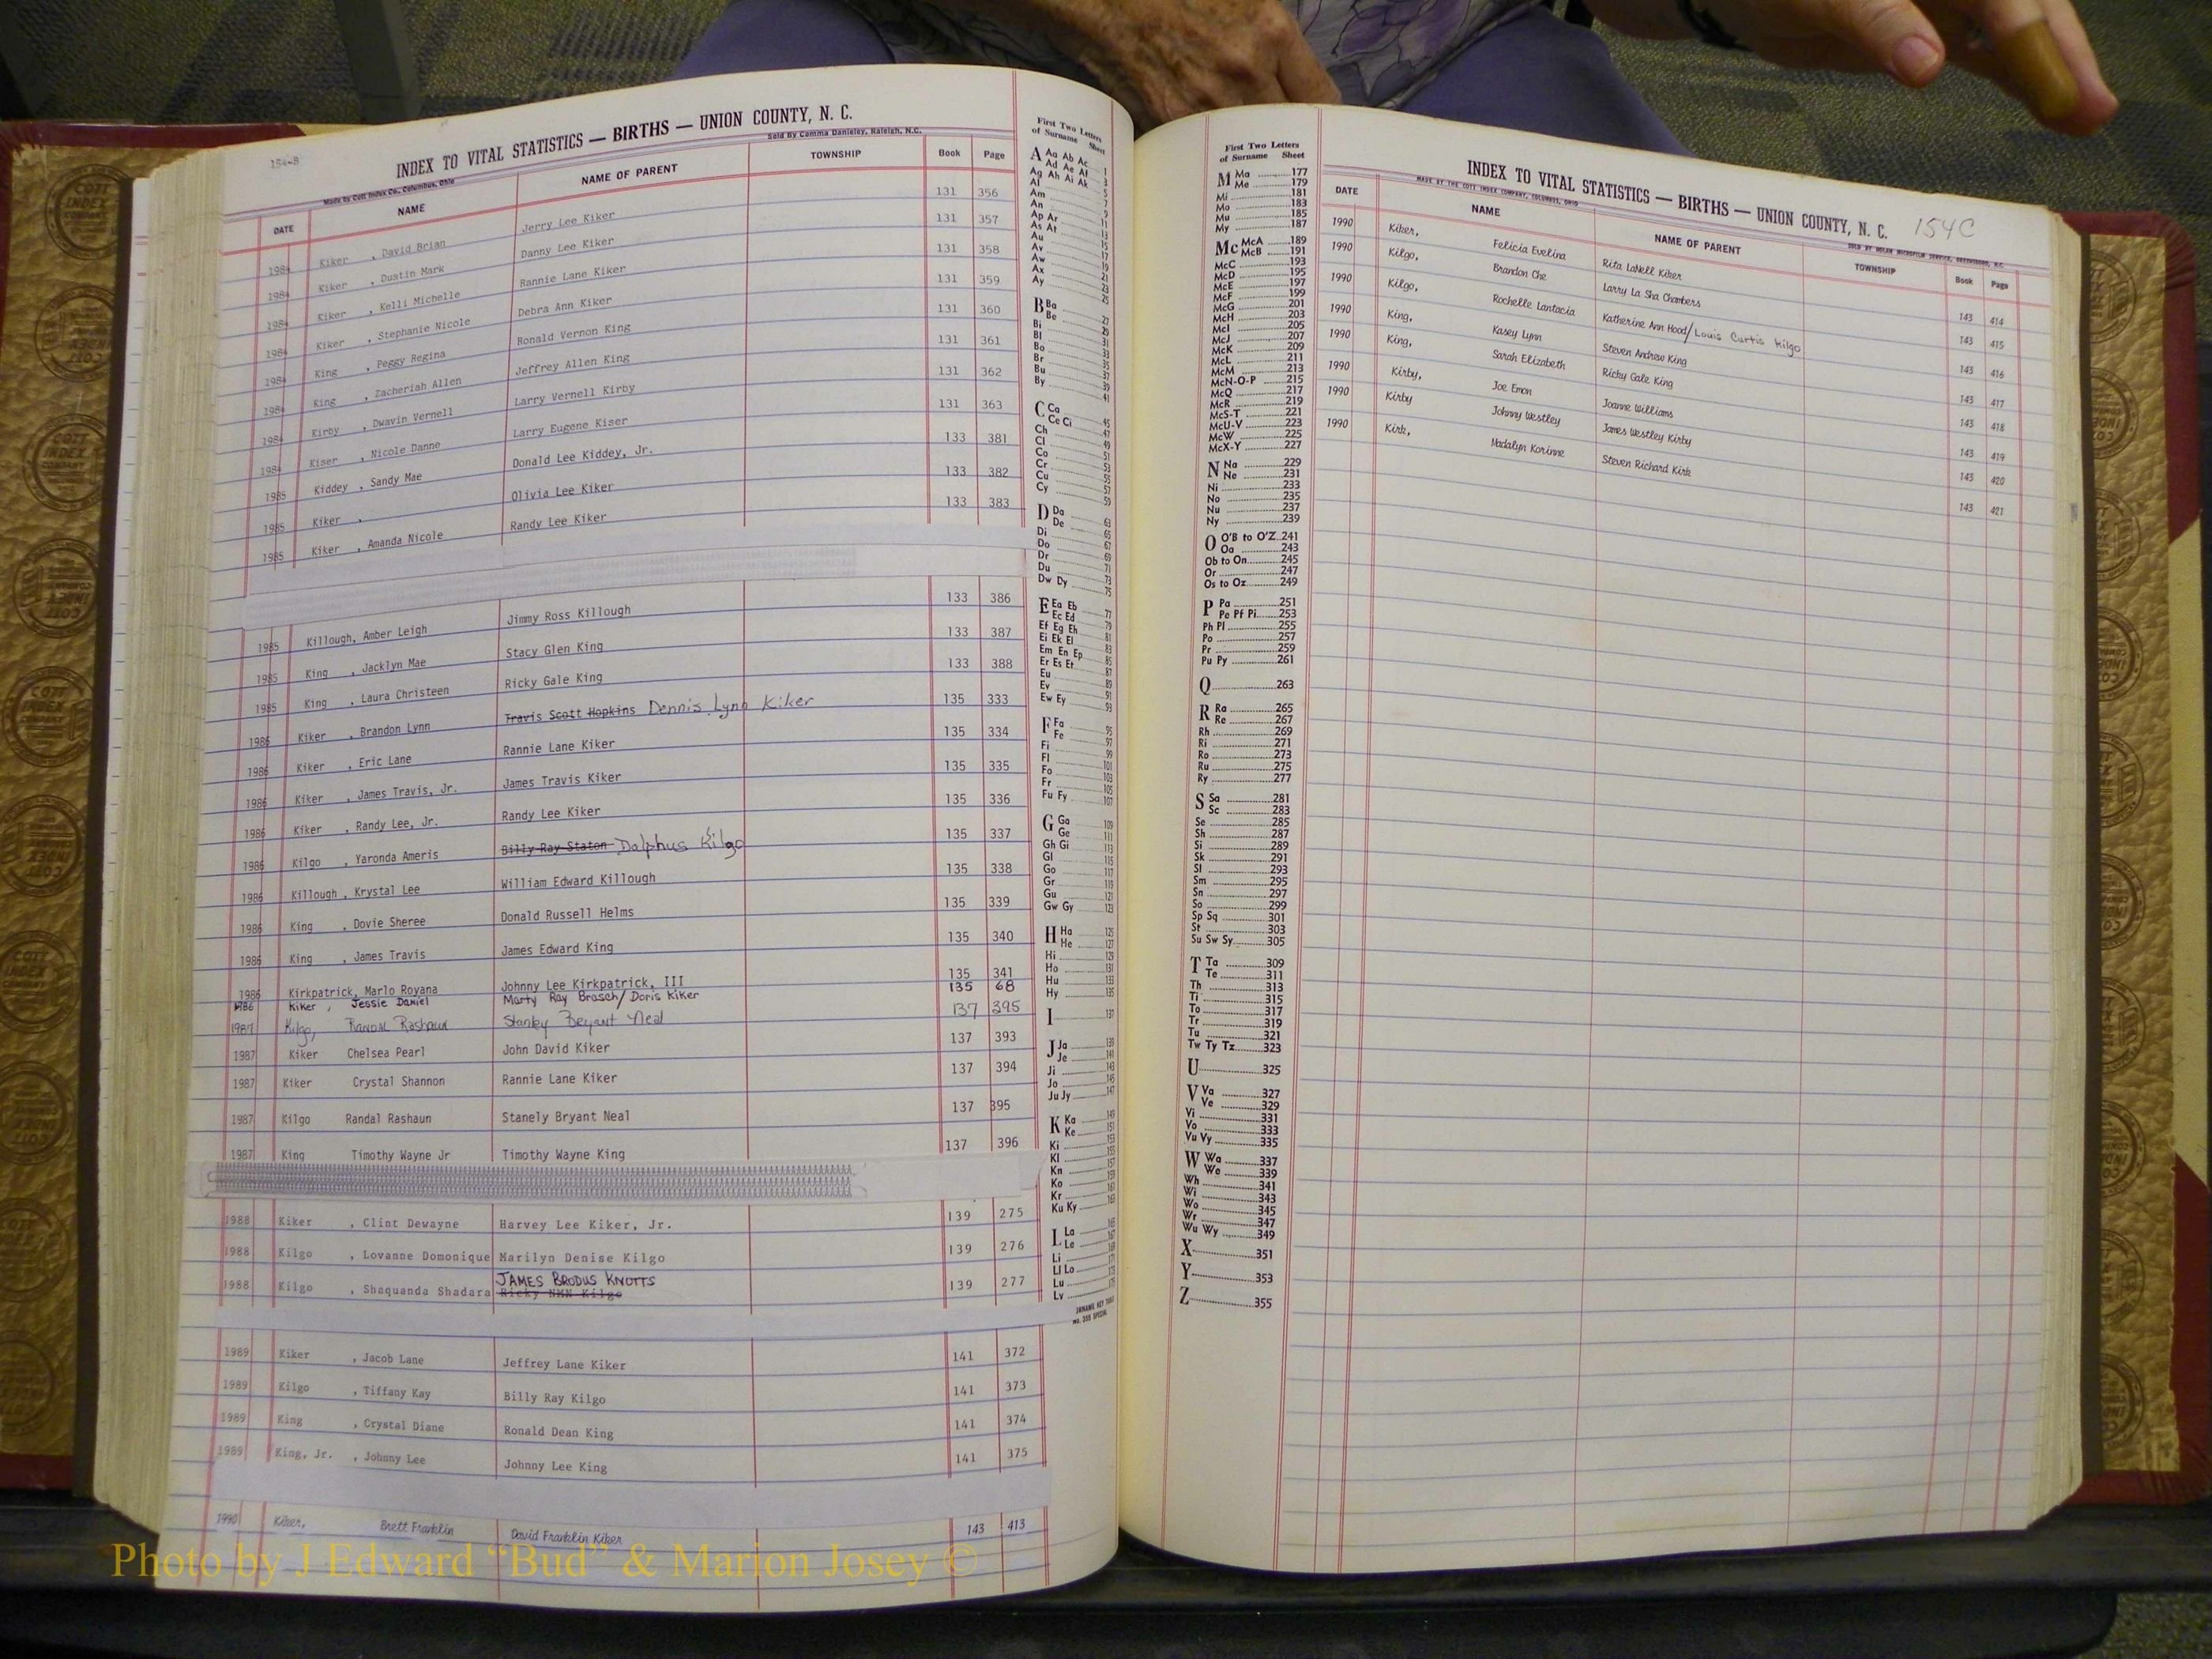 154-B
INDEX TO VITAL STATISTICS — BIRTHS — UNION COUNTY, N. C.
Made by Cott Index Co., Columbus, Ohio Sold By Comma Danieley, Raleigh, N.C.
DATE NAME NAME OF PARENT TOWNSHIP Book Page
1984 Kiker , David Brian Jerry Lee Kiker 131 356
1984 Kiker , Dustin Mark Danny Lee Kiker 131 357
1984 Kiker , Kelli Michelle Rannie Lane Kiker 131 358
1984 Kiker , Stephanie Nicole Debra Ann Kiker 131 359
1984 King , Peggy Regina Ronald Vernon King 131 360
1984 King , Zacheriah Allen Jeffrey Allen King 131 361
1984 Kirby , Dwavin Vernell Larry Vernell Kirby 131 362
1984 Kiser , Nicole Danne Larry Eugene Kiser 131 363
1985 Kiddey , Sandy Mae Donald Lee Kiddey, Jr. 133 381
1985 Kiker , Olivia Lee Kiker 133 382
1985 Kiker , Amanda Nicole Randy Lee Kiker 133 383
1985 Killough, Amber Leigh Jimmy Ross Killough 133 386
1985 King , Jacklyn Mae Stacy Glen King 133 387
1985 King , Laura Christeen Ricky Gale King 133 388
1986 Kiker , Brandon Lynn Travis Scott Hopkins Dennis Lynn Kiker 135 333
1986 Kiker , Eric Lane Rannie Lane Kiker 135 334
1986 Kiker , James Travis, Jr. James Travis Kiker 135 335
1986 Kiker , Randy Lee, Jr. Randy Lee Kiker 135 336
1986 Kilgo , Yaronda Ameris Billy Ray Staton Dalphus Kilgo 135 337
1986 Killough , Krystal Lee William Edward Killough 135 338
1986 King , Dovie Sheree Donald Russell Helms 135 339
1986 King , James Travis James Edward King 135 340
1986 Kirkpatrick, Marlo Royana Johnny Lee Kirkpatrick, III 135 341
1986 Kiker , Jessie Daniel Marty Ray Brasch/Doris Kiker 135 68
1987 Kilgo, Randal Rashaun Stanley Bryant Neal 137 395
1987 Kiker Chelsea Pearl John David Kiker 137 393
1987 Kiker Crystal Shannon Rannie Lane Kiker 137 394
1987 Kilgo Randal Rashaun Stanely Bryant Neal 137 395
1987 King Timothy Wayne Jr Timothy Wayne King 137 396
1988 Kiker , Clint Dewayne Harvey Lee Kiker, Jr. 139 275
1988 Kilgo , Lovanne Domonique Marilyn Denise Kilgo 139 276
JAMES BRODUS KNOTTS
1988 Kilgo , Shaquanda Shadara Ricky NMN Kilgo 139 277
1989 Kiker , Jacob Lane Jeffrey Lane Kiker 141 372
1989 Kilgo , Tiffany Kay Billy Ray Kilgo 141 373
1989 King , Crystal Diane Ronald Dean King 141 374
1989 King, Jr. , Johnny Lee Johnny Lee King 141 375
1990 Kiker, Brett Franklin David Franklin Kiker 143 413
First Two Letters
of Surname Sheet
A Aa Ab Ac 1
Ad Ae Af 3
Ag Ah Ai Ak 5
Al 7
Am 9
An 11
Ap Ar 13
As At 15
Au 17
Av 19
Aw 21
Ax 23
Ay 25
B Ba 27
Be 29
Bi 31
Bl 33
Bo 35
Br 37
Bu 39
By 41
C Ca 45
Ce Ci 47
Ch 49
Cl 51
Co 53
Cr 55
Cu 57
Cy 59
D Da 63
De 65
Di 67
Do 69
Dr 71
Du 73
Dw Dy 75
E Ea Eb 77
Ec Ed 79
Ef Eg Eh 81
Ei Ek El 83
Em En Ep 85
Er Es Et 87
Eu 89
Ev 91
Ew Ey 93
F Fa 95
Fe 97
Fi 99
Fl 101
Fo 103
Fr 105
Fu Fy 107
G Ga 109
Ge 111
Gh Gi 113
Gl 115
Go 117
Gr 119
Gu 121
Gw Gy 123
H Ha 125
He 127
Hi 129
Ho 131
Hu 133
Hy 135
I 137
J Ja 139
Je 141
Ji 143
Jo 145
Ju Jy 147
K Ka 149
Ke 151
Ki 153
Kl 155
Kn 157
Ko 159
Kr 161
Ku Ky 163
L La 165
Le 167
Li 169
Ll Lo 171
Lu
Ly
First Two Letters
of Surname Sheet
M Ma 177
Me 179
Mi 181
Mo 183
Mu 185
My 187
Mc McA 189
McB 191
McC 193
McD 195
McE 197
McF 199
McG 201
McH 203
McI 205
McJ 207
McK 209
McL 211
McM 213
McN-O-P 215
McQ 217
McR 219
McS-T 221
McU-V 223
McW 225
McX-Y 227
N Na 229
Ne 231
Ni 233
No 235
Nu 237
Ny 239
O O'B to O'Z 241
Oa 243
Ob to On 245
Or 247
Os to Oz 249
P Pa 251
Pe Pf Pi 253
Ph Pl 255
Po 257
Pr 259
Pu Py 261
Q 263
R Ra 265
Re 267
Rh 269
Ri 271
Ro 273
Ru 275
Ry 277
S Sa 281
Sc 283
Se 285
Sh 287
Si 289
Sk 291
Sl 293
Sm 295
Sn 297
So 299
Sp Sq 301
St 303
Su Sw Sy 305
T Ta 309
Te 311
Th 313
Ti 315
To 317
Tr 319
Tu 321
Tw Ty Tz 323
U 325
V Va 327
Ve 329
Vi 331
Vo 333
Vu Vy 335
W Wa 337
We 339
Wh 341
Wi 343
Wo 345
Wr 347
Wu Wy 349
X 351
Y 353
Z 355
INDEX TO VITAL STATISTICS — BIRTHS — UNION COUNTY, N. C. 154C
MADE BY THE COTT INDEX COMPANY, COLUMBUS, OHIO
DATE NAME NAME OF PARENT TOWNSHIP Book Page
1990 Kiker, Felicia Evelina Rita LaNell Kiker 143 414
1990 Kilgo, Brandon Che Larry La Sha Chambers 143 415
1990 Kilgo, Rochelle Lantacia Katherine Ann Hood/Louis Curtis Kilgo 143 416
1990 King, Kasey Lynn Steven Andrew King 143 417
1990 King, Sarah Elizabeth Ricky Gale King 143 418
1990 Kirby, Joe Emon Joanne Williams 143 419
1990 Kirby Johnny Westley James Westley Kirby 143 420
1990 Kirk, Madalyn Korinne Steven Richard Kirk 143 421
Photo by J Edward “Bud” & Marion Josey ©